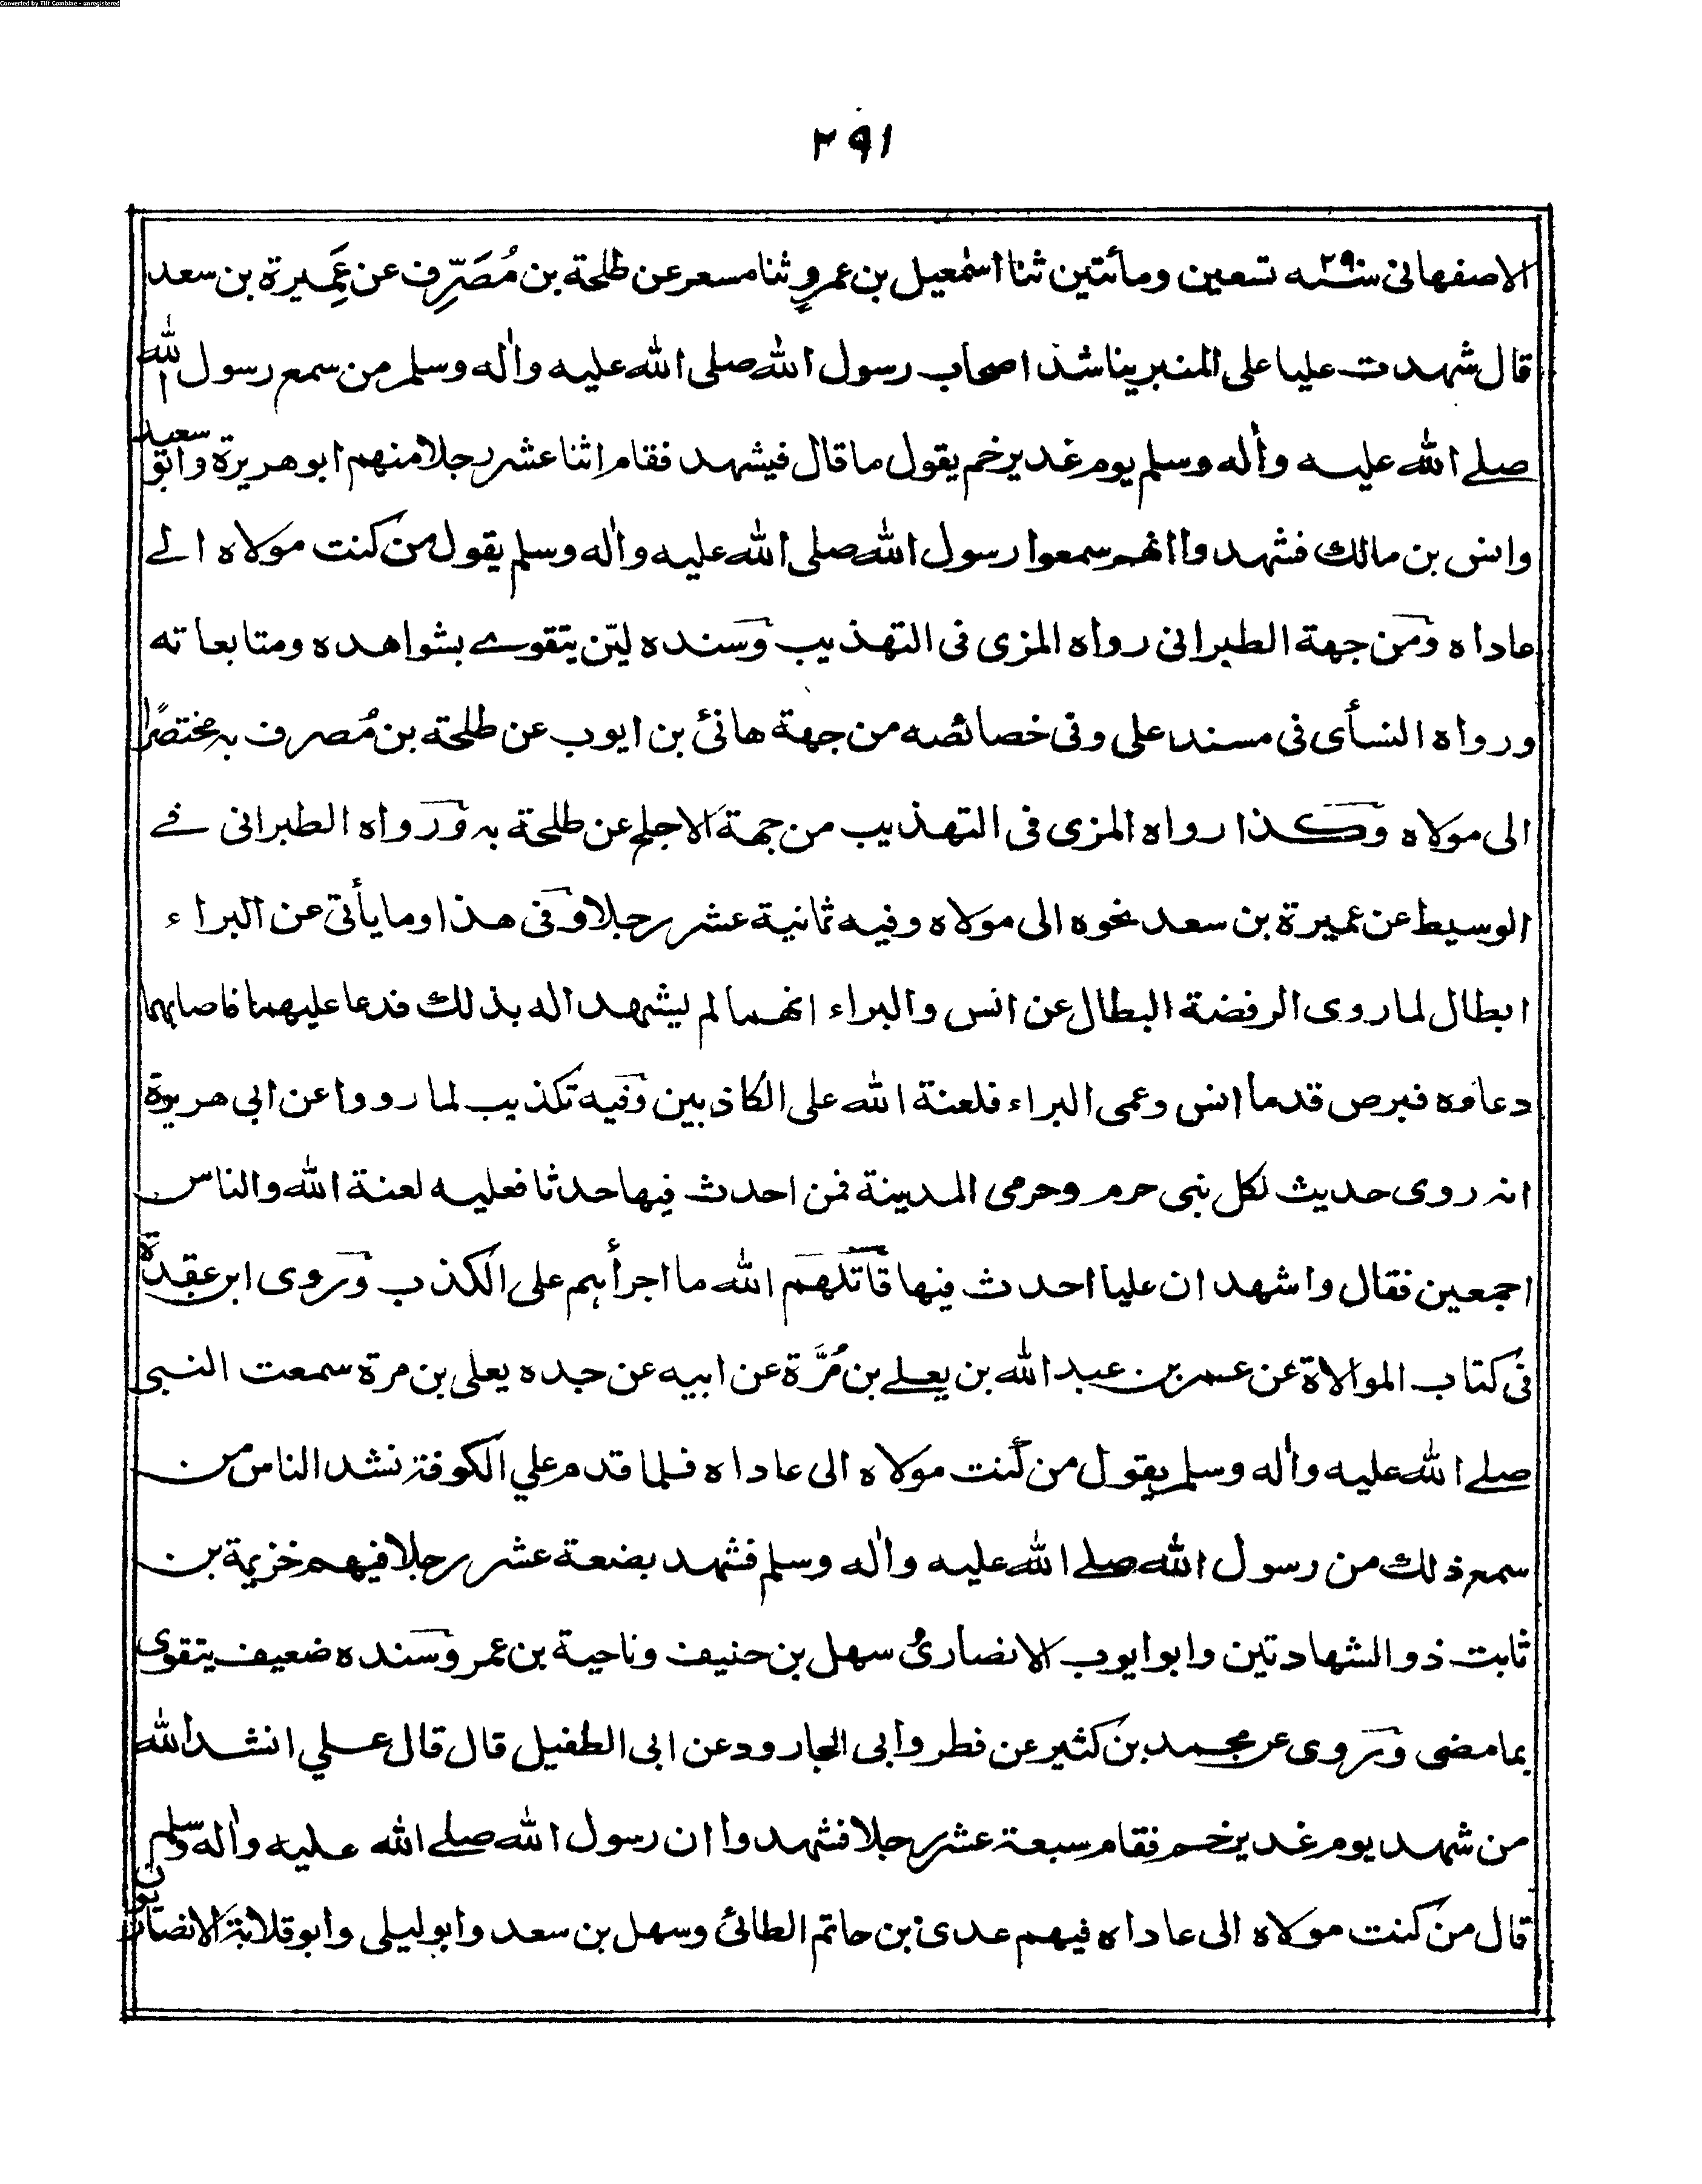 Converted by Tiff Combine - unregistered
٢٩١
الاصفهانى سنه ٢٩٠ تسعين ومأتين ثنا اسمٰعيل بن عمرٍو ثنا مسعر عن طلحة بن مُصَرِّف عن عَمِيرة بن سعد
قال شهدت عليا على المنبر يناشد اصحاب رسول الله صلى الله عليه واٰله وسلم من سمع رسول الله
صلے الله عليه واٰله وسلم يوم غدير خم يقول ما قال فيشهد فقام اثنا عشر رجلا منهم ابو هريرة وابو سعيد
وانس بن مالك فشهدوا انهم سمعوا رسول الله صلى الله عليه واٰله وسلم يقول من كنت مولاه الے
عاداه ومن جهة الطبرانى رواه المزى فى التهذيب وسنده ليّن يتقوے بشواهده ومتابعاته
ورواه النسأى فى مسند على وفى خصائصه من جهة هانئ بن ايوب عن طلحة بن مُصرف به مختصرًا
الى مولاه وكذا رواه المزى فى التهذيب من جهة الاجلح عن طلحة به ورواه الطبرانى فے
الوسيط عن عميرة بن سعد نحوه الى مولاه وفيه ثمانية عشر رجلا وفى هذا وما يأتى عن البراء
ابطال لما روى الرفضة البطال عن انس والبراء انهما لم يشهد اله بذلك فدعا عليهما فاصابهما
دعاوه فبرص قدما انس وعمى البراء فلعنة الله على الكاذبين وفيه تكذيب لما رووا عن ابى هريرة
انه روى حديث لكل نبى حرم وحرمى المدينة فمن احدث فيها حدثا فعليه لعنة الله والناس
اجمعين فقال واشهد ان عليا احدث فيها قاتلهم الله ما اجرأهم على الكذب وروى ابن عقدة
فى كتاب الموالاة عن عمر بن عبد الله بن يعلے بن مُرَّة عن ابيه عن جده يعلى بن مرة سمعت النبى
صلے الله عليه واٰله وسلم يقول من كنت مولاه الى عاداه فلما قدم علي الكوفة نشد الناس من
سمع ذلك من رسول الله صلے الله عليه واٰله وسلم فشهد بضعة عشر رجلا فيهم خزيمة بن
ثابت ذو الشهادتين وابو ايوب الانصارىُ سهل بن حنيف وناجية بن عمر وسنده ضعيف يتقوى
بما مضى وروى عن محمد بن كثير عن فطر وابى الجارود عن ابى الطفيل قال قال علي انشد الله
من شهد يوم غدير خم فقام سبعة عشر رجلا فشهدوا ان رسول الله صلے الله عليه واٰله وسلم
قال من كنت مولاه الى عاداه فيهم عدى بن حاتم الطائى وسهل بن سعد وابو ليلى وابو قلابة الانصاريون